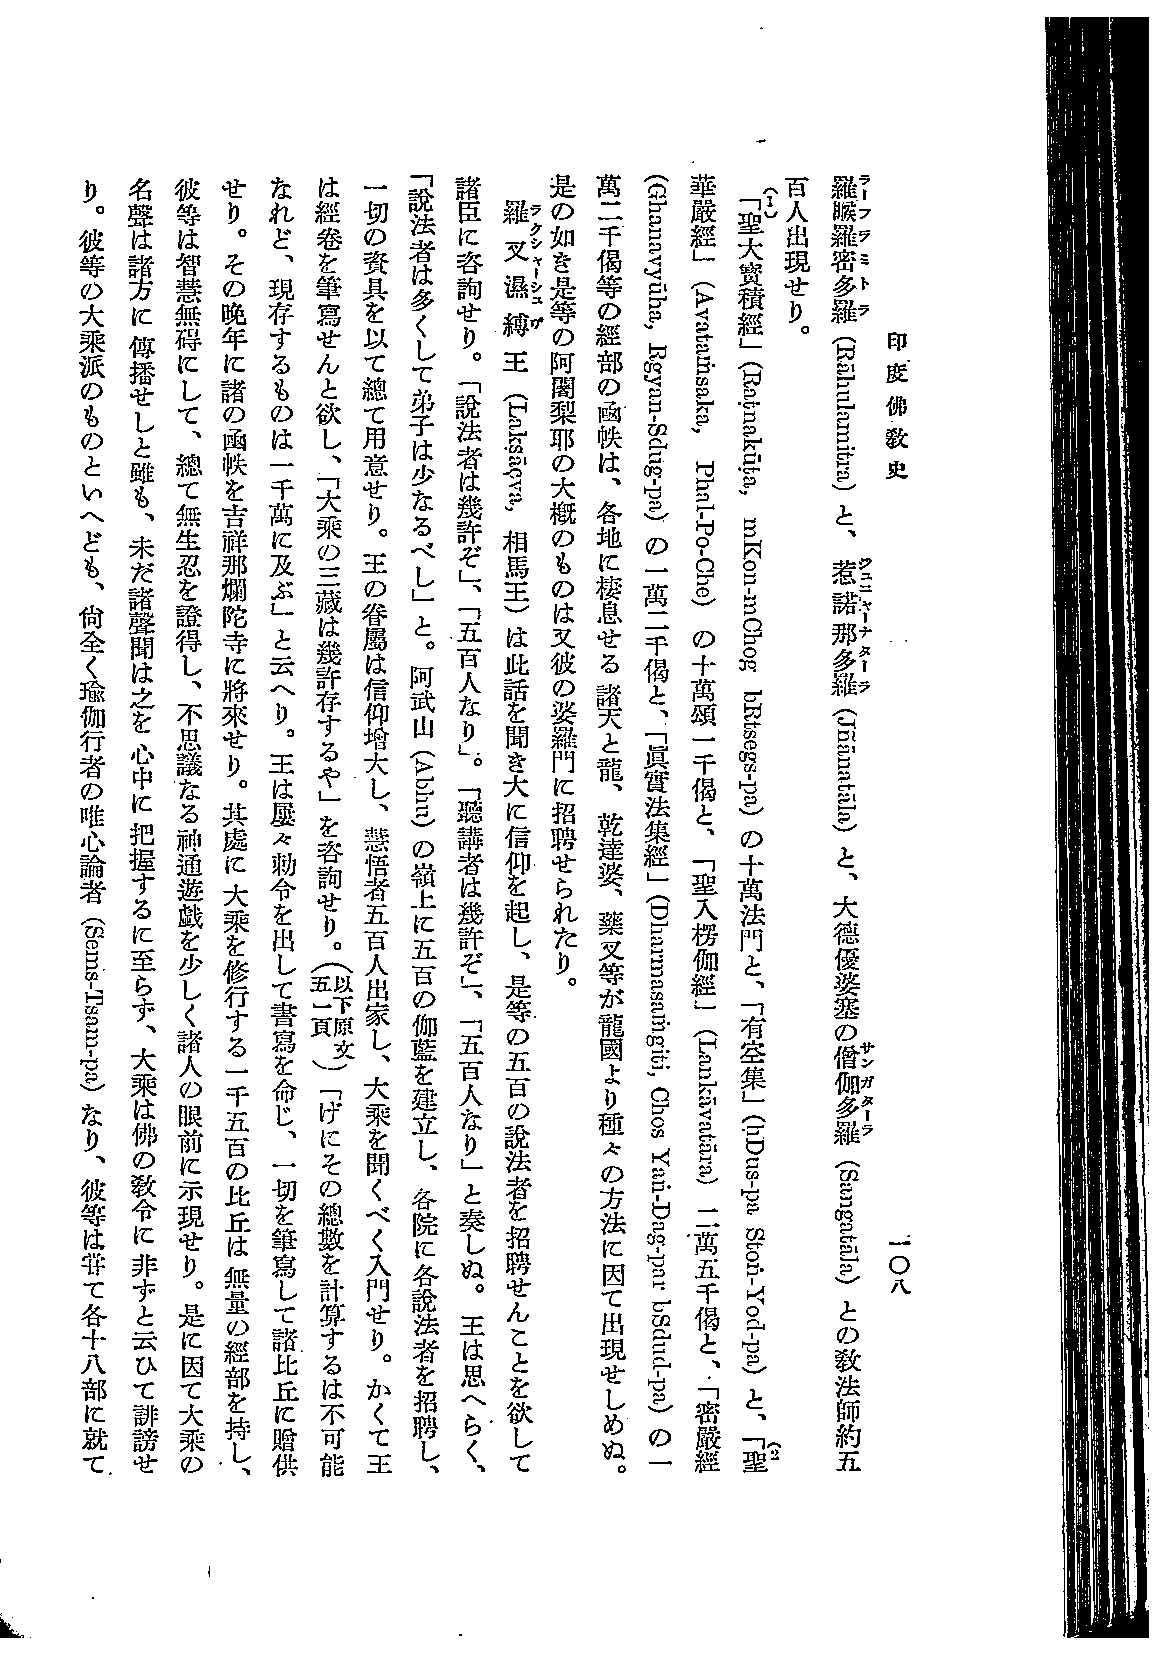 印度佛敎史
一〇八
羅睺羅密多羅(Rāhulamitra)と、惹諾那多羅(Jñānatāla)と、大德優婆塞の僧伽多羅(Sangatāla)との敎法師約五
百人出現せり。
「聖大寶積經」(Ratnakūṭa, mKon-mChog bRtsegs-pa)の十萬法門と、「有空集」(hDus-pa Stoṅ-Yod-pa)と、「聖
華嚴經」(Avataṁsaka, Phal-Po-Che)の十萬頌一千偈と、「聖入楞伽經」(Lankāvatāra)二萬五千偈と、「密嚴經
(Ghanavyūha, Rgyan-Sdug-pa)の一萬二千偈と、「眞實法集經」(Dharmasaṁgiti, Chos Yaṅ-Dag-par bSdud-pa)の一
萬二千偈等の經部の函帙は、各地に棲息せる諸天と龍、乾達婆、藥叉等が龍國より種々の方法に因て出現せしめぬ。
是の如き是等の阿闍梨耶の大槪のものは又彼の婆羅門に招聘せられたり。
羅叉濕縛王(Lakṣāçva, 相馬王)は此話を聞き大に信仰を起し、是等の五百の說法者を招聘せんことを欲して
諸臣に咨詢せり。「說法者は幾許ぞ」、「五百人なり」。「聽講者は幾許ぞ」、「五百人なり」と奏しぬ。王は思へらく、
「說法者は多くして弟子は少なるべし」と。阿武山(Abhu)の嶺上に五百の伽藍を建立し、各院に各說法者を招聘し、
一切の資具を以て總て用意せり。王の眷屬は信仰增大し、慧悟者五百人出家し、大乘を聞くべく入門せり。かくて王
は經卷を筆寫せんと欲し、「大乘の三藏は幾許存するや」を咨詢せり。(以下原文五一頁)「げにその總數を計算するは不可能
なれど、現存するものは一千萬に及ぶ」と云へり。王は屢々勅令を出して書寫を命じ、一切を筆寫して諸比丘に贈供
せり。その晩年に諸の函帙を吉祥那爛陀寺に將來せり。其處に大乘を修行する一千五百の比丘は無量の經部を持し、
彼等は智慧無碍にして、總て無生忍を證得し、不思議なる神通遊戯を少しく諸人の眼前に示現せり。是に因て大乘の
名聲は諸方に傳播せしと雖も、未だ諸聲聞は之を心中に把握するに至らず、大乘は佛の敎令に非ずと云ひて誹謗せ
り。彼等の大乘派のものといへども、尙全く瑜伽行者の唯心論者(Sems-Tsam-pa)なり、彼等は甞て各十八部に就て